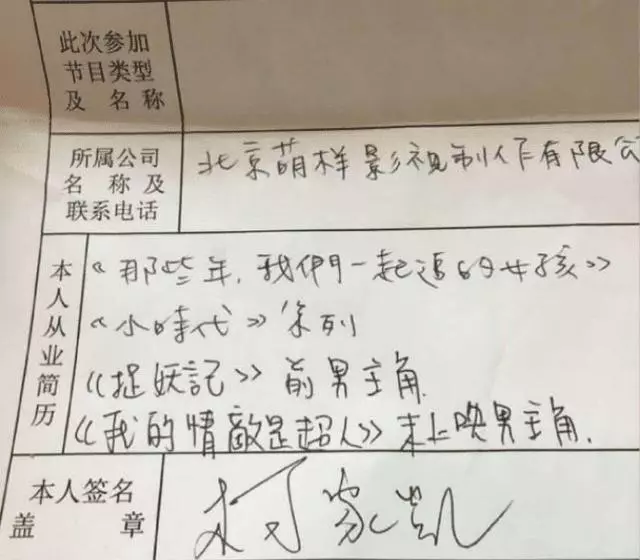 此次参加
节目类型
及 名 称
所属公司
名 称 及
联系电话
北京萌样影視制作有限公
本人从业简历
《那些年,我們一起追的女孩》
《小時代》系列
《捉妖記》前男主角
《我的情敵是超人》未上映男主角.
本人签名
盖 章
柯家凯